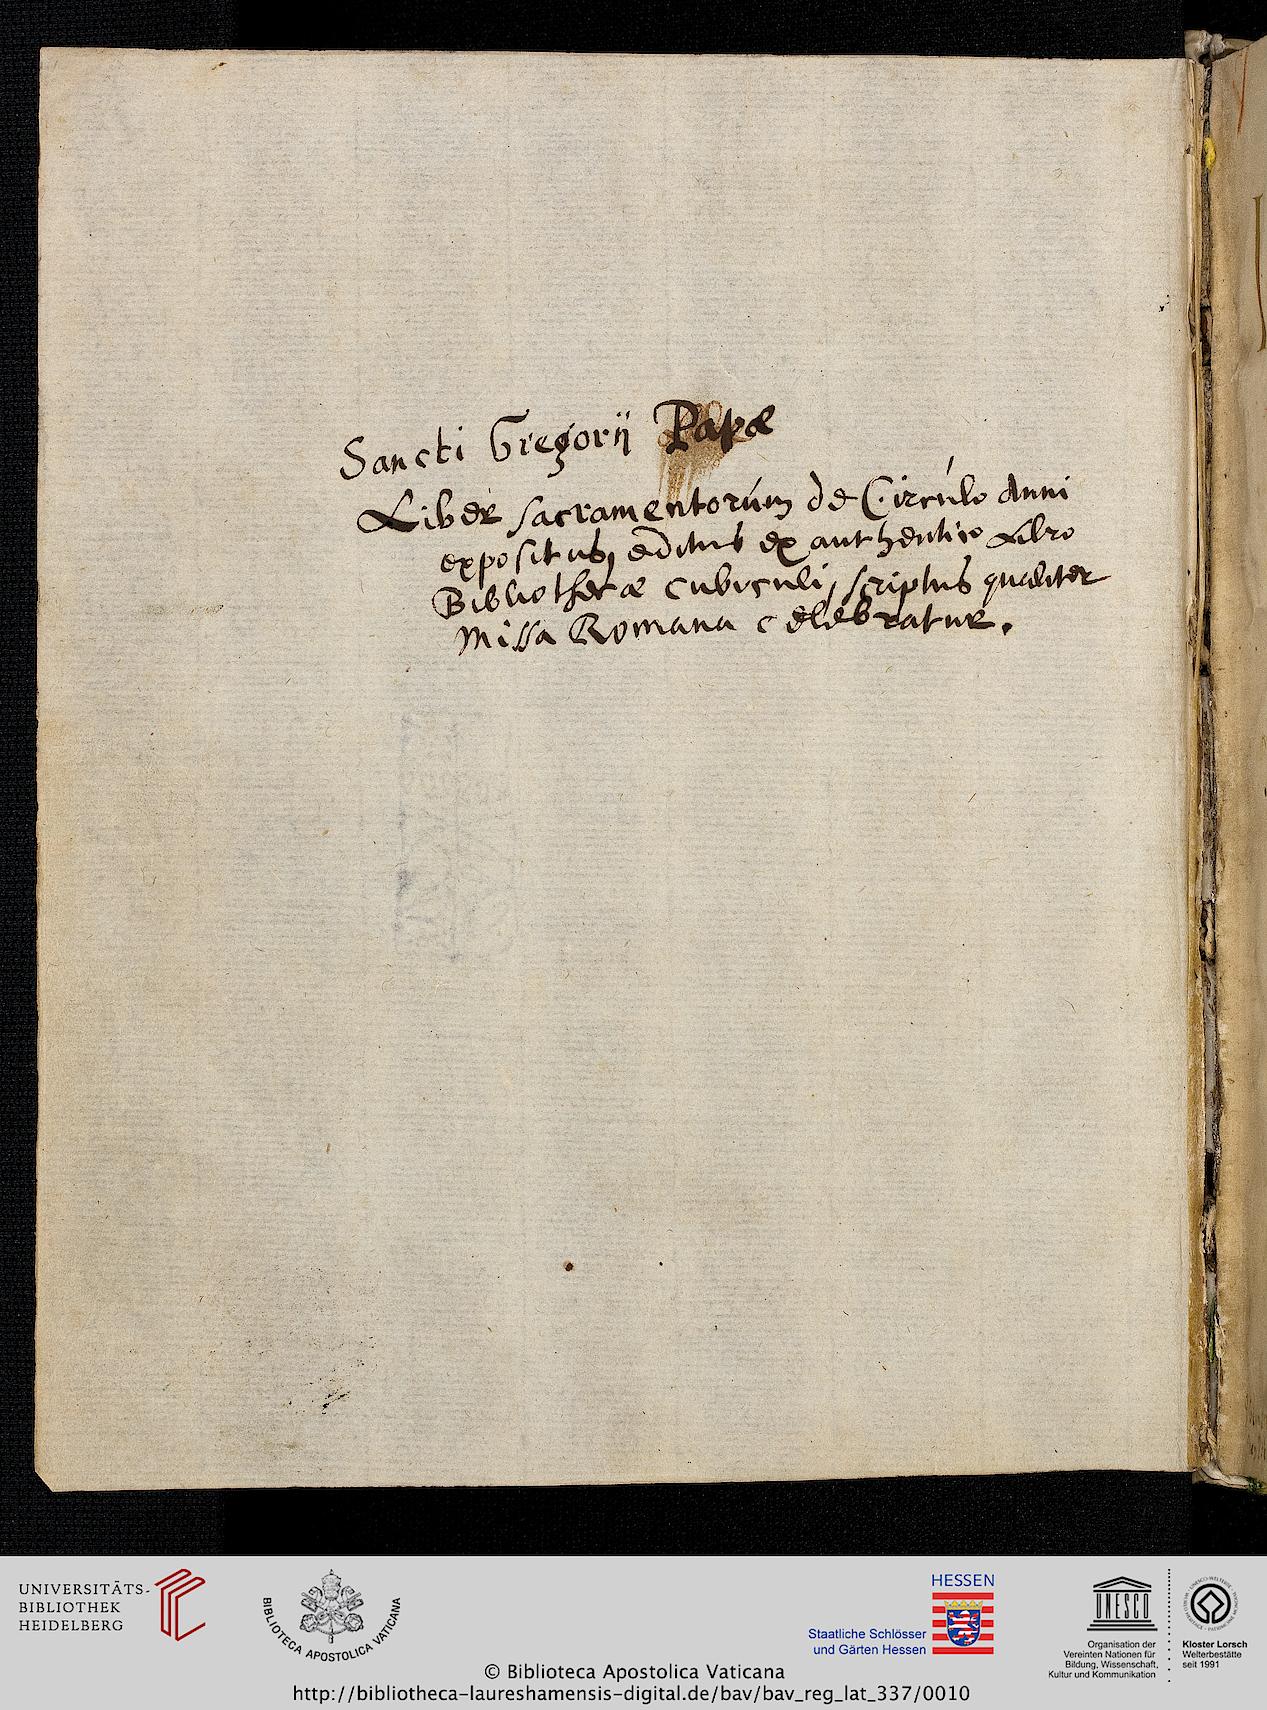 Sancti Gregorij Papæ
Liber sacramentorúm de Circúlo Anni
expositus, editus ex authentico Libro
Bibliothecæ cubiculi, scriptus qualiter
Missa Romana celebratur.
UNIVERSITÄTS-
BIBLIOTHEK
HEIDELBERG
BIBLIOTECA APOSTOLICA VATICANA
HESSEN
Staatliche Schlösser
und Gärten Hessen
UNESCO
Organisation der
Vereinten Nationen für
Bildung, Wissenschaft,
Kultur und Kommunikation
Kloster Lorsch
Welterbestätte
seit 1991
© Biblioteca Apostolica Vaticana
http://bibliotheca-laureshamensis-digital.de/bav/bav_reg_lat_337/0010